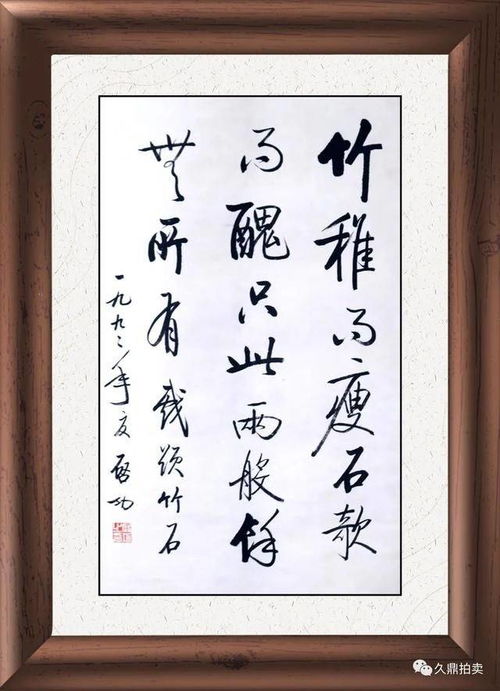 竹稚而瘦石欹
而醜只此兩般餘
無所有戲題竹石
一九九二年夏啓功
久鼎拍卖